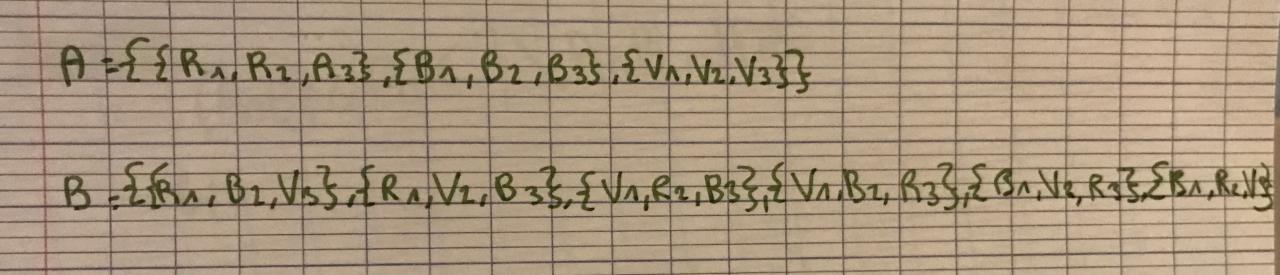 A = {{R1, R2, R3}, {B1, B2, B3}, {V1, V2, V3}}
B = {{R1, B2, V3}, {R1, V2, B3}, {V1, R2, B3}, {V1, B2, R3}, {B1, V2, R3}, {B1, R2, V3}